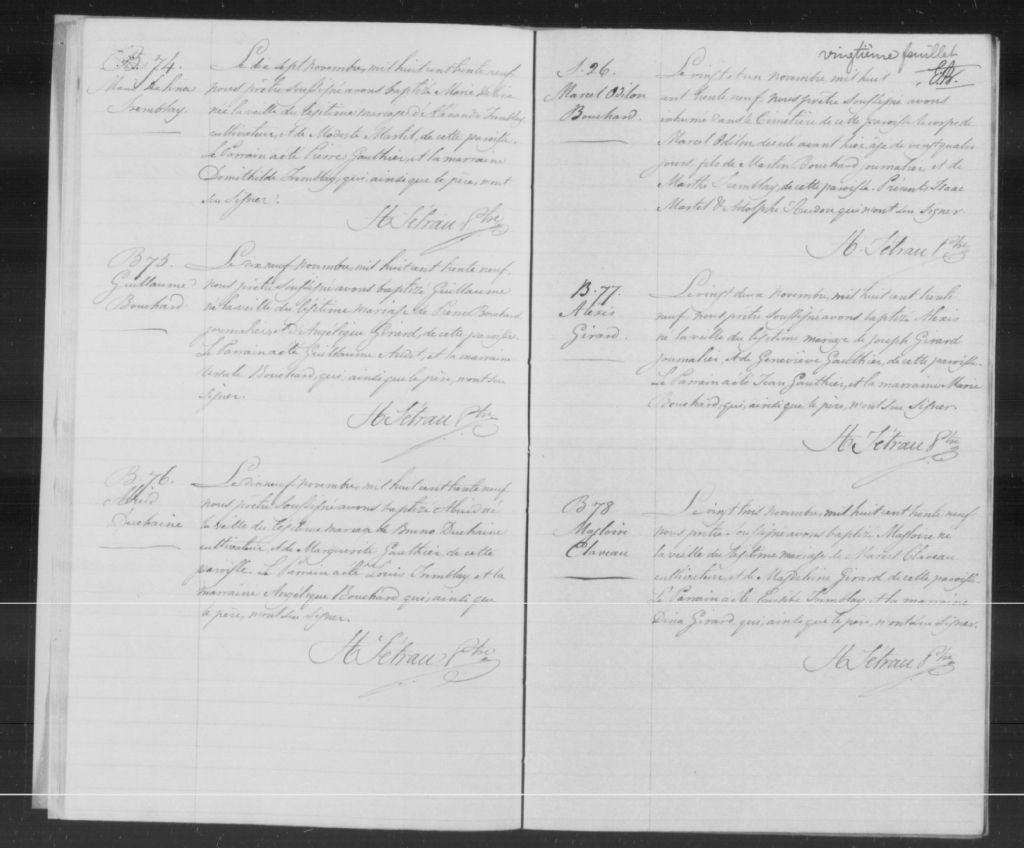 B. 74.
Marie Delina
Tremblay
Le dix sept novembre, mil huit cent trente neuf,
nous prêtre soussigné avons baptizé Marie Delina
née la veille du légitime mariage de Tremblay
cultivateur, et de Modeste Martel, de cette paroisse.
Le Parrain a été Pierre Gauthier, et la marraine
Domithilde Tremblay, qui, ainsi que le père, n'ont
su signer.
H. Tétrau Ptre
B 75.
Guillaume
Bouchard
Le dix neuf novembre, mil huit cent trente neuf,
nous prêtre soussigné avons baptizé Guillaume
né la veille du légitime mariage de Bouchard
journalier, et d'Angélique Girard, de cette paroisse.
Le Parrain a été Guillaume et la marraine
Bouchard, qui, ainsi que le père, n'ont su
signer.
H. Tétrau Ptre
B. 76.
Duchaine
Le dix neuf novembre, mil huit cent trente neuf,
nous prêtre soussigné avons baptizé né
la veille du légitime mariage de Bruno Duchaine
cultivateur, et de Marguerite Gauthier de cette
paroisse. Le Parrain a été Louis Tremblay et la
marraine Angelique Bouchard qui, ainsi que
le père, n'ont su signer.
H. Tétrau Ptre
vingtième feuillet
S. 26.
Marcel Odilon
Bouchard.
Le vingt et un novembre mil huit
cent trente neuf, nous prêtre soussigné avons
inhumé dans le Cimetière de cette paroisse le corps de
Marcel Odilon décédé avant hier âgé de vingt quatre
jours, fils de Martin Bouchard journalier et de
Marthe Tremblay, de cette paroisse. Présents Isaac
Martel & Adolphe qui n'ont su signer
H. Tétrau Ptre
B. 77.
Alexis
Girard.
Le vingt deux novembre, mil huit cent trente
neuf, nous prêtre soussigné avons baptizé Alexis
né la veille du légitime mariage de Joseph Girard
journalier, et de Geneviève Gauthier, de cette paroisse.
Le Parrain a été Jean Gauthier, et la marraine Marie
Bouchard, qui, ainsi que le père, n'ont su signer.
H. Tétrau Ptre
B 78
Magloire
Claveau
Le vingt trois novembre, mil huit cent trente neuf
nous prêtre soussigné avons baptizé Magloire né
la veille du légitime mariage de Marcel Claveau
cultivateur, et de Magdeleine Girard de cette paroisse.
Le Parrain a été Eusèbe Tremblay, et la marraine
Dina Girard, qui, ainsi que le père, n'ont su signer.
H. Tétrau Ptre